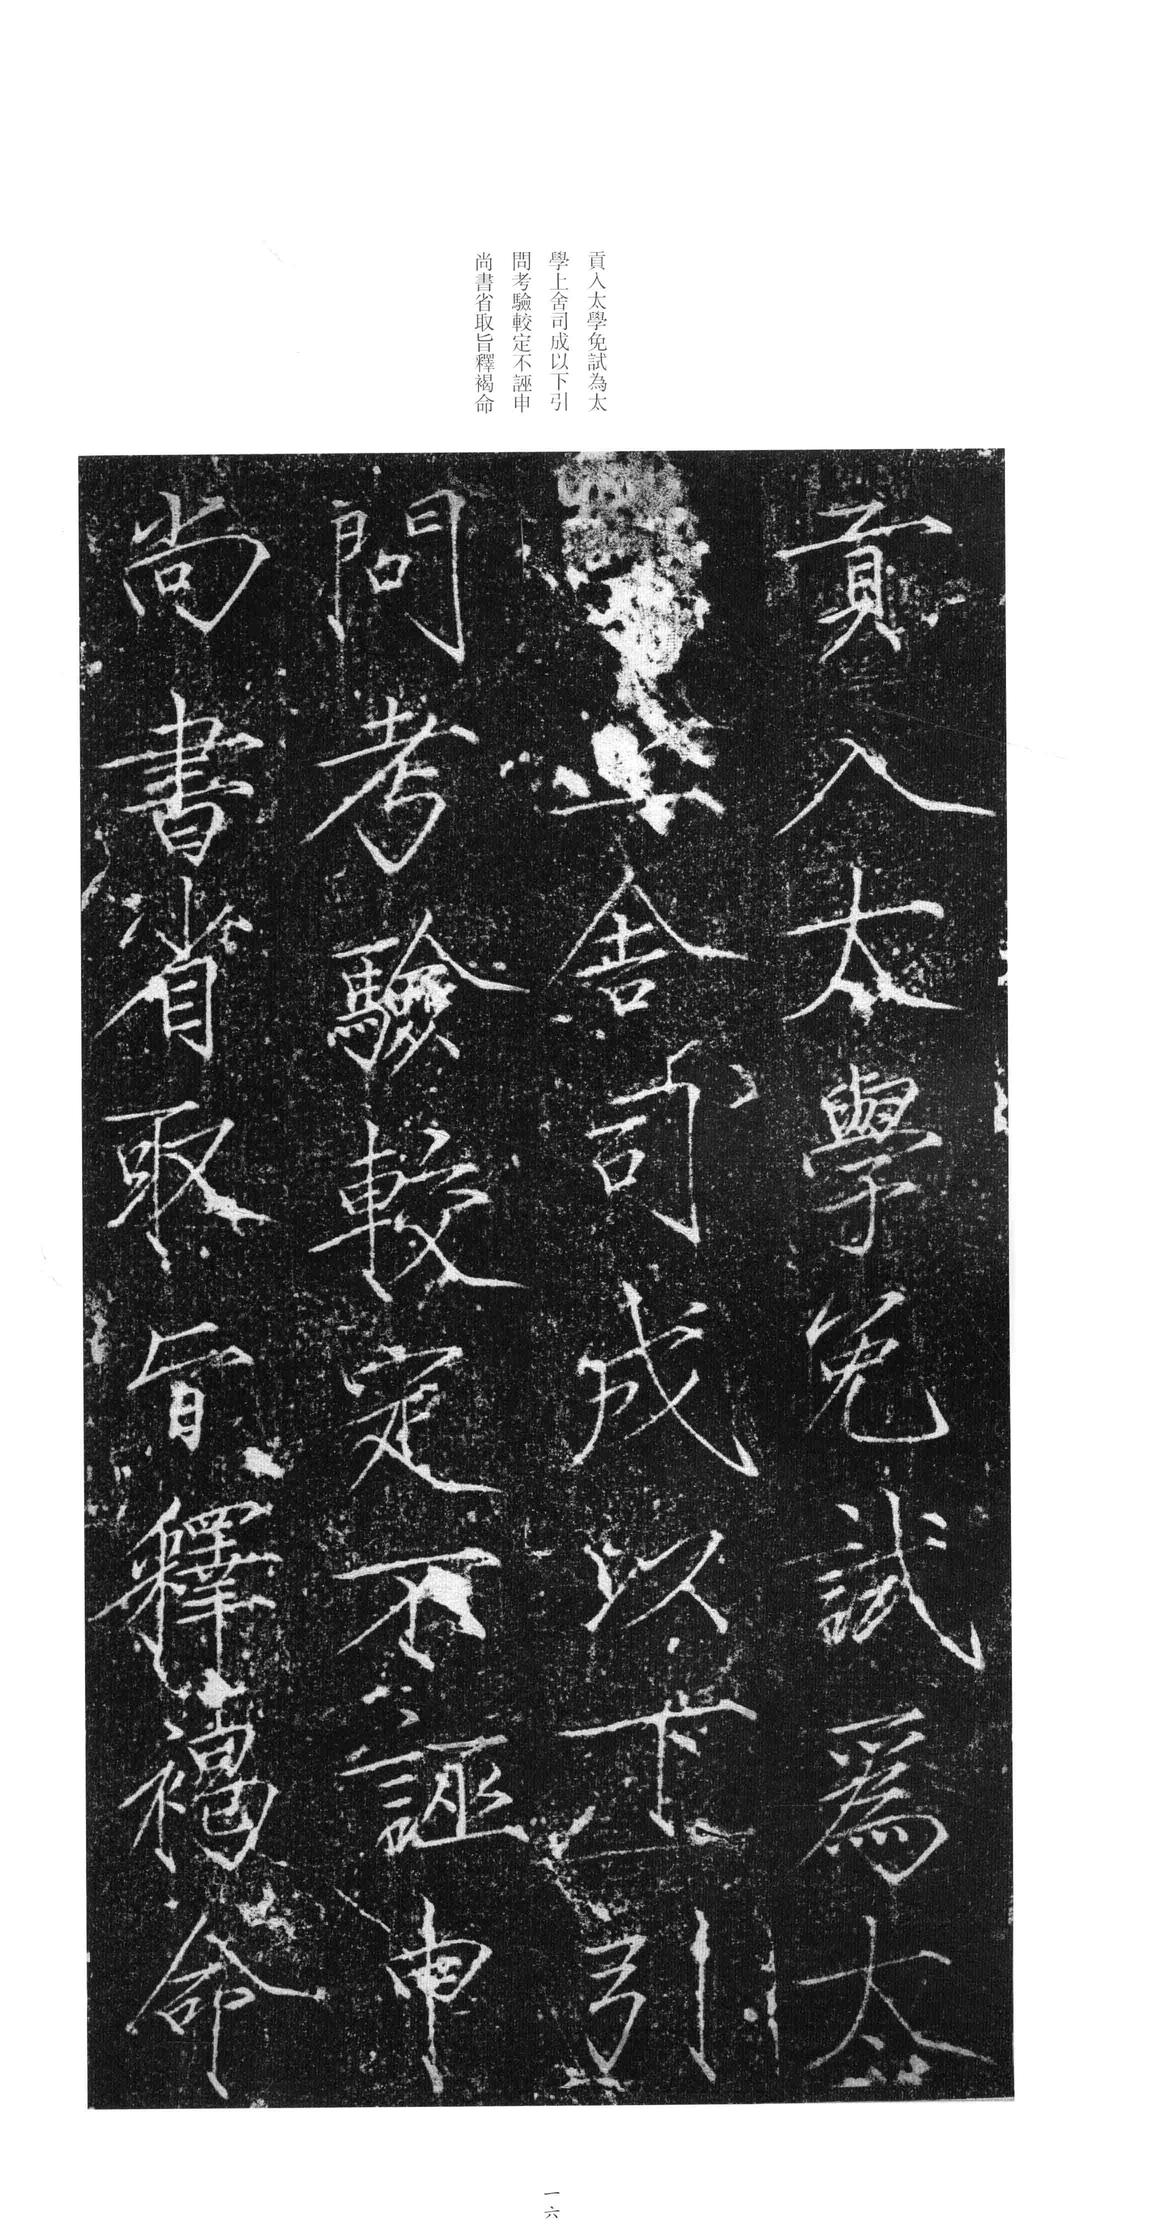 貢入太學免試為太
學上舍司成以下引
問考驗較定不誣申
尚書省取旨釋褐命
貢入太學免試爲太
舍司成以下引
問考驗較定不誣申
尚書省取旨釋褐命
一六